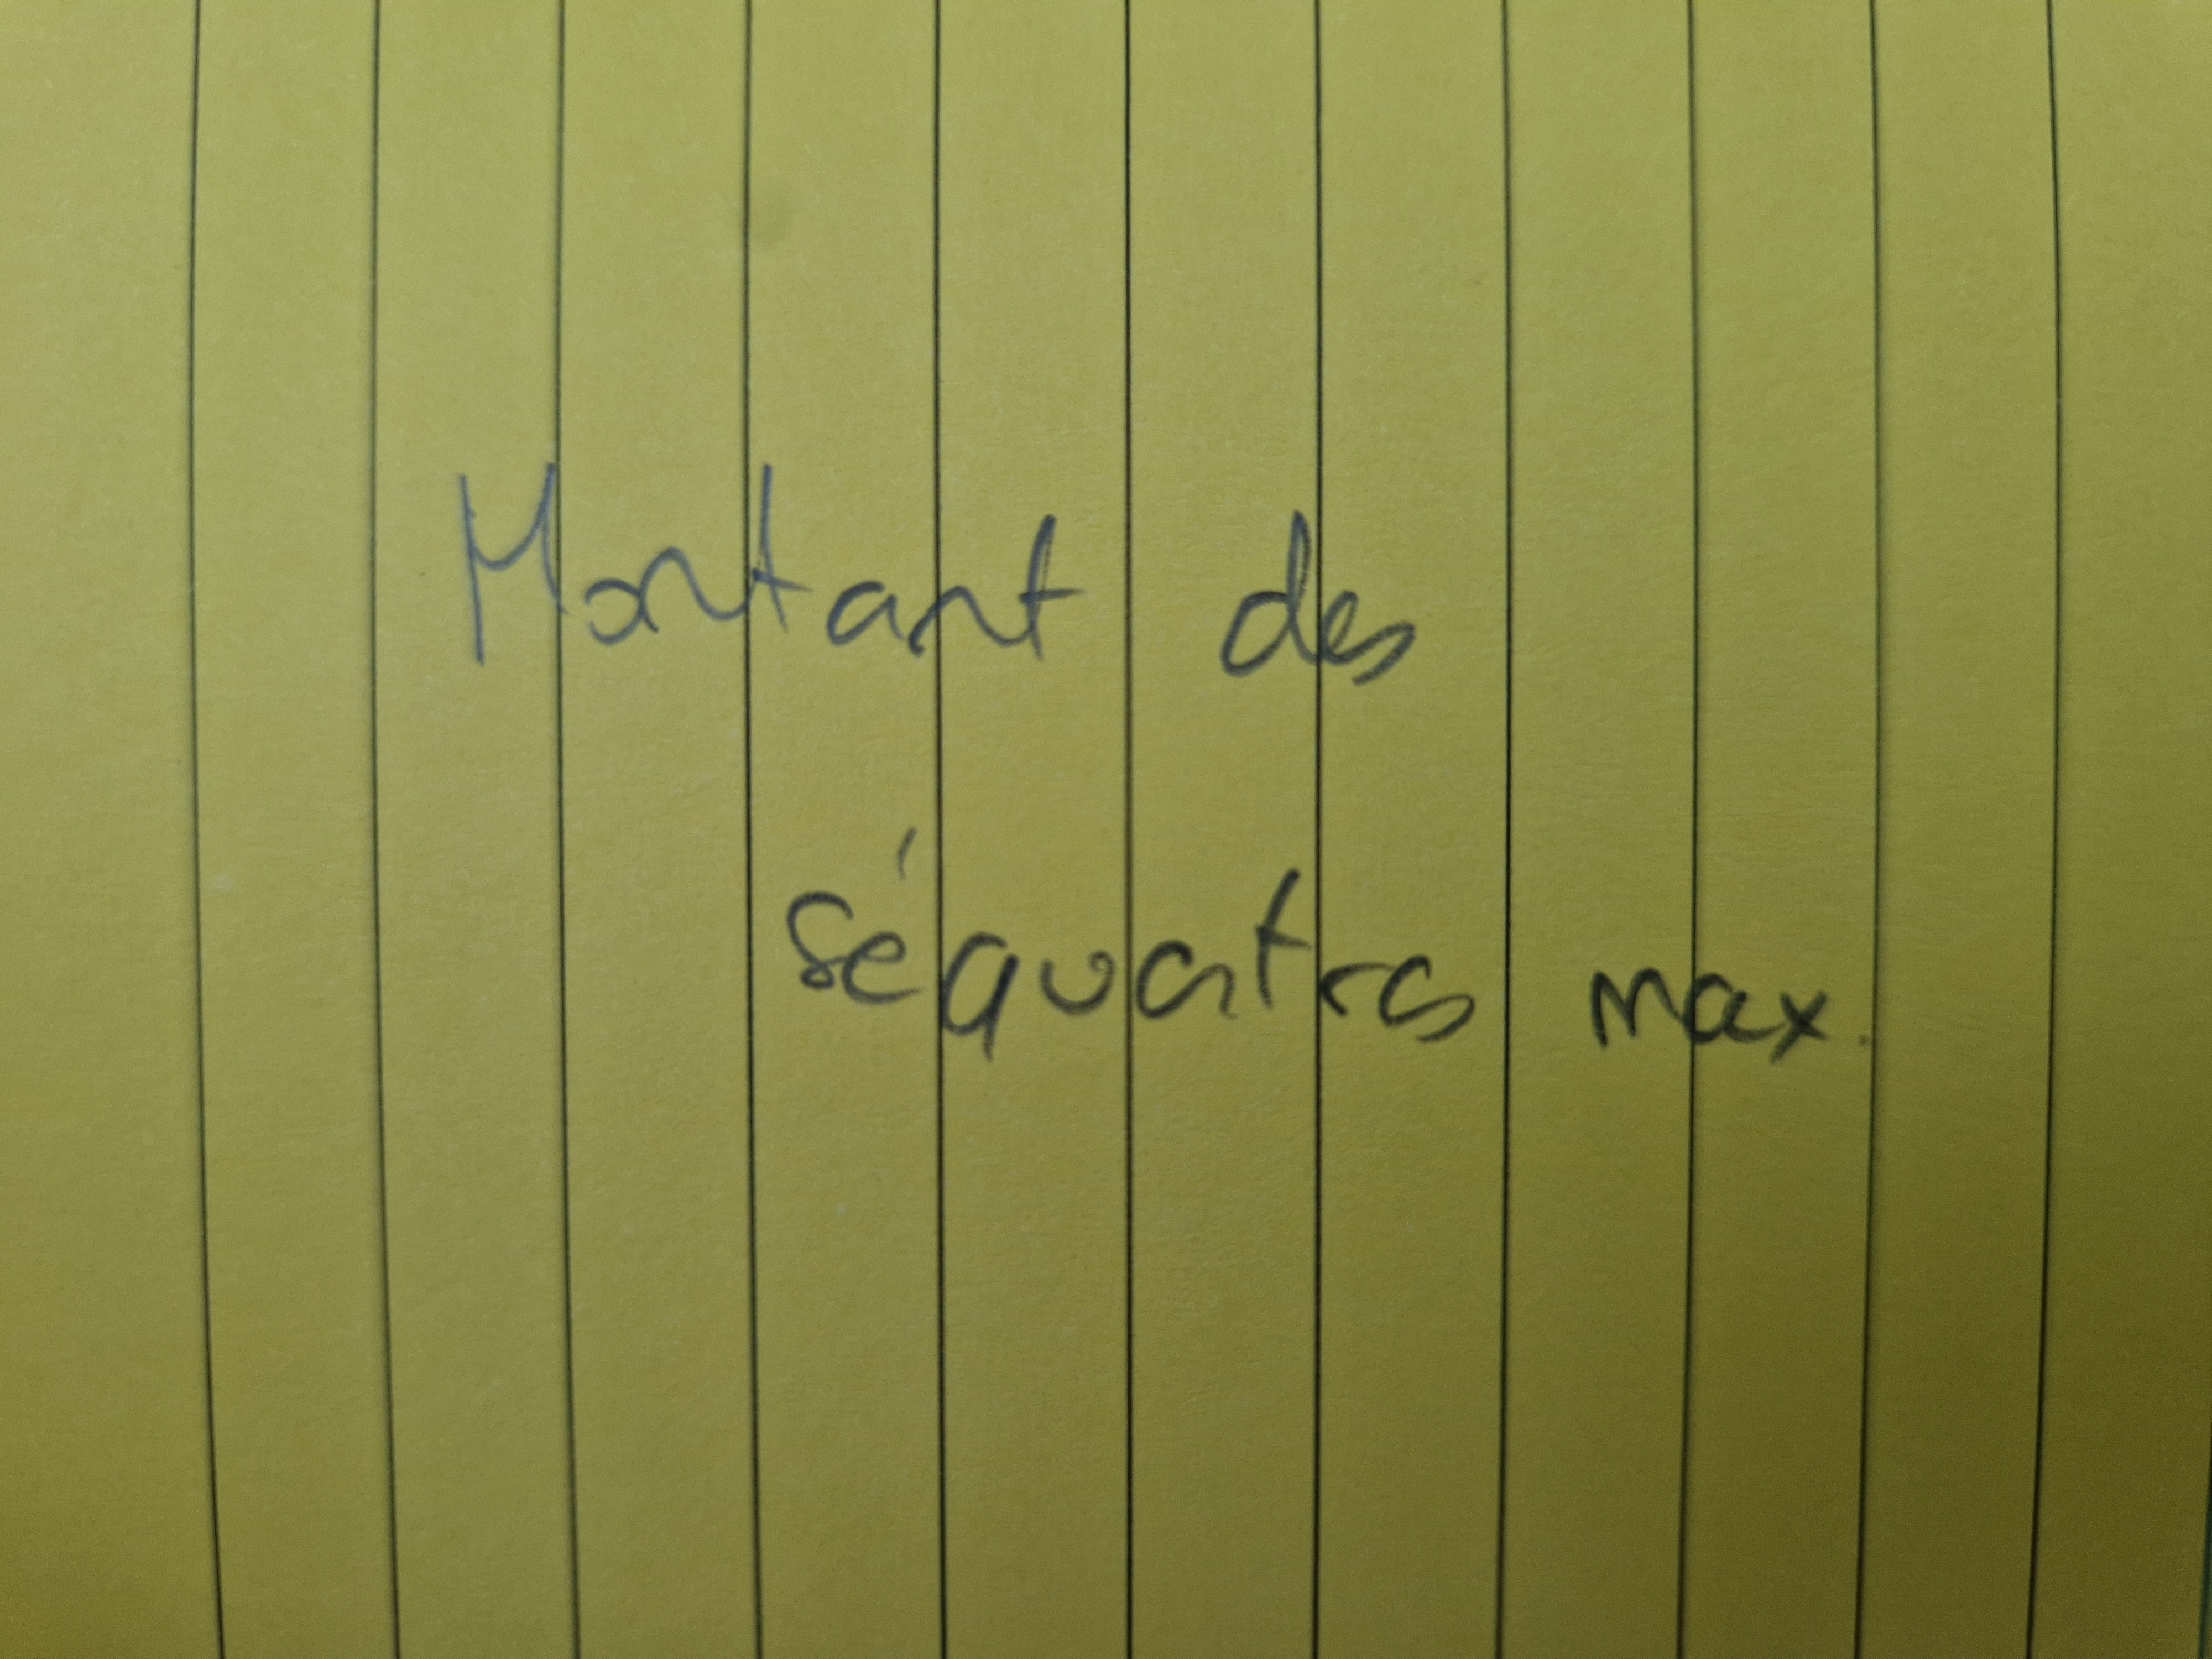 Montant des
séquatres max.